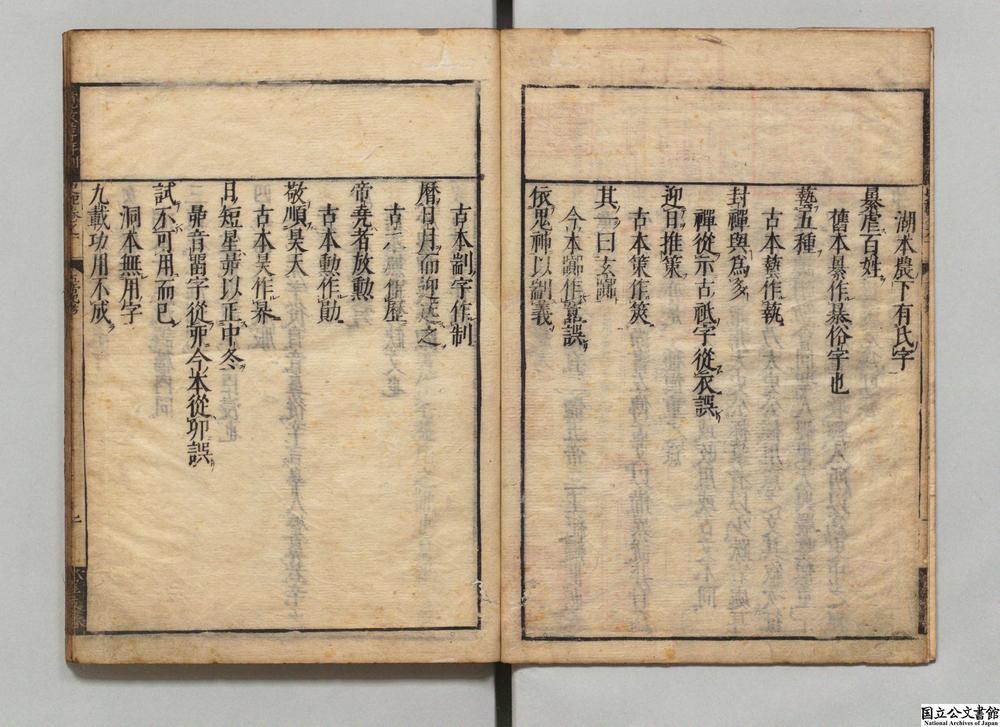 湖本農下有氏字
暴虐百姓
舊本暴作㬥俗字也
藝五種
古本藝作執
封禪與爲多
禪從示古祇字從衣誤
迎日推策
古本策作筴
其一曰玄囂
今本囂作嚚誤
依鬼神以剬義
古本剬字作制
曆日月而迎送之
帝堯者放勲
古本勲作勛
敬順昊天
古本昊作暴
日短星昴以正中冬
昴音畱字從丣今本從卯誤
試不可用而已
洞本無用字
九載功用不成
国立公文書館
National Archives of Japan